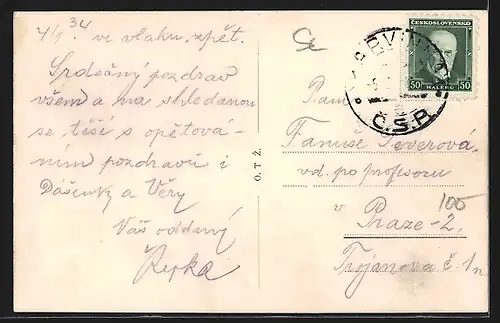 4/1 34 ve vlaku, zpět.
Srdečný pozdrav
všem a na shledanou
se těší s opětová-
ním pozdravů i
Dášenky a Věry
Váš oddaný
Řepka
O. T. Ž.
ČESKOSLOVENSKO
50 HALÉŘŮ 50
Č.S.R.
Paní
Fanuše Severová,
vd. po profesoru
v Praze-2.
Trojanova č. 1
100